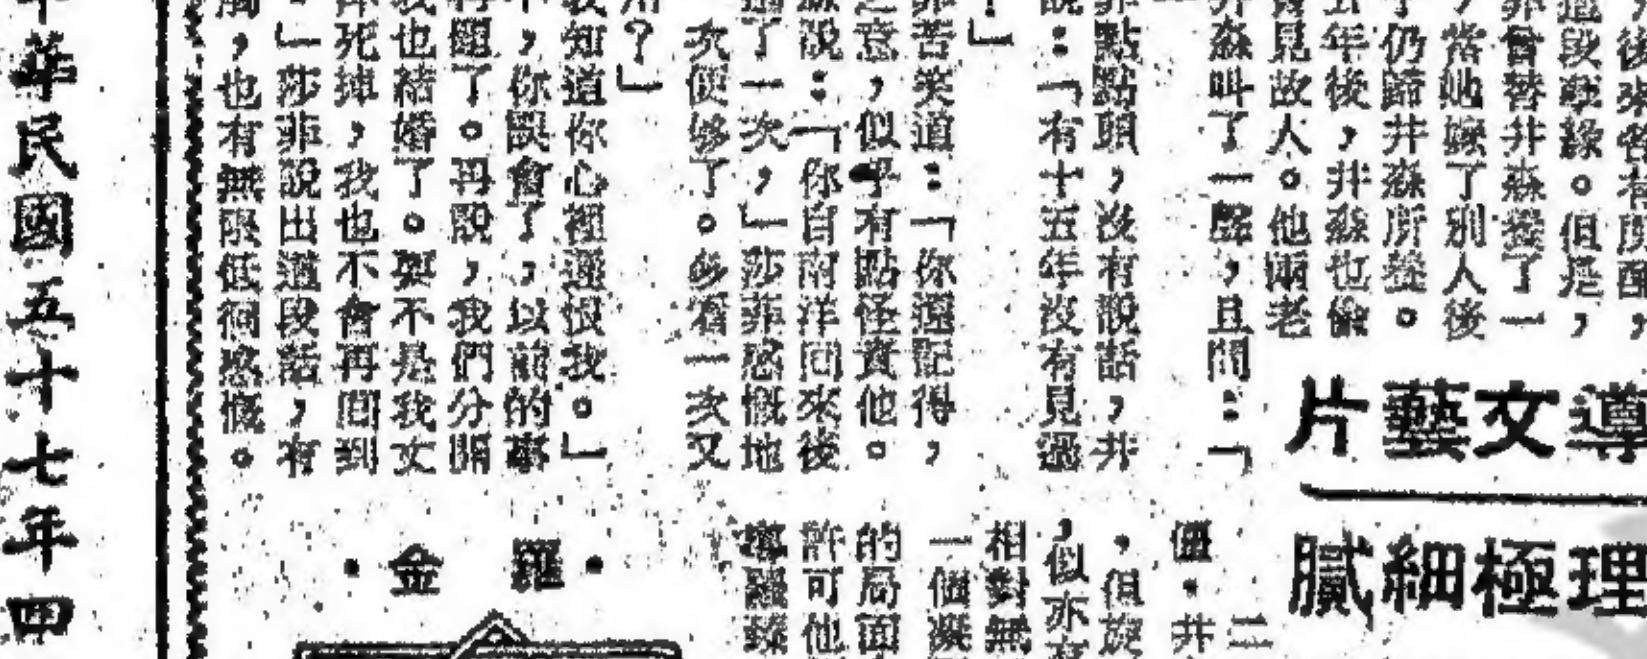 ，後來各有所配，
這段孽緣。但是，
菲曾替井淼養了一
，當她嫁了別人後
子仍歸井淼所養。
五年後，井淼也偷
會見故人。他兩老
井淼叫了一聲，且問：「
菲點點頭，沒有說話，井
說：「有十五年沒有見過
！」
菲苦笑道：「你還記得，
之意，似乎有點怪責他。
淼說：「你自南洋回來後
過了一次，」莎菲感慨地
次便够了。多看一次又
用？」
我知道你心裡還恨我。」
不，你誤會了，以前的事
再題了。再說，我們分開
我也結婚了。要不是我丈
死掉，我也不會再回到
。」莎菲說出這段話，有
觸，也有無限低徊感慨。
導文藝片
理極細膩
二
僵．井
，但旋
，似亦有
相對無
一個凝
的局面
許可他
・羅金・
華民國五十七年四